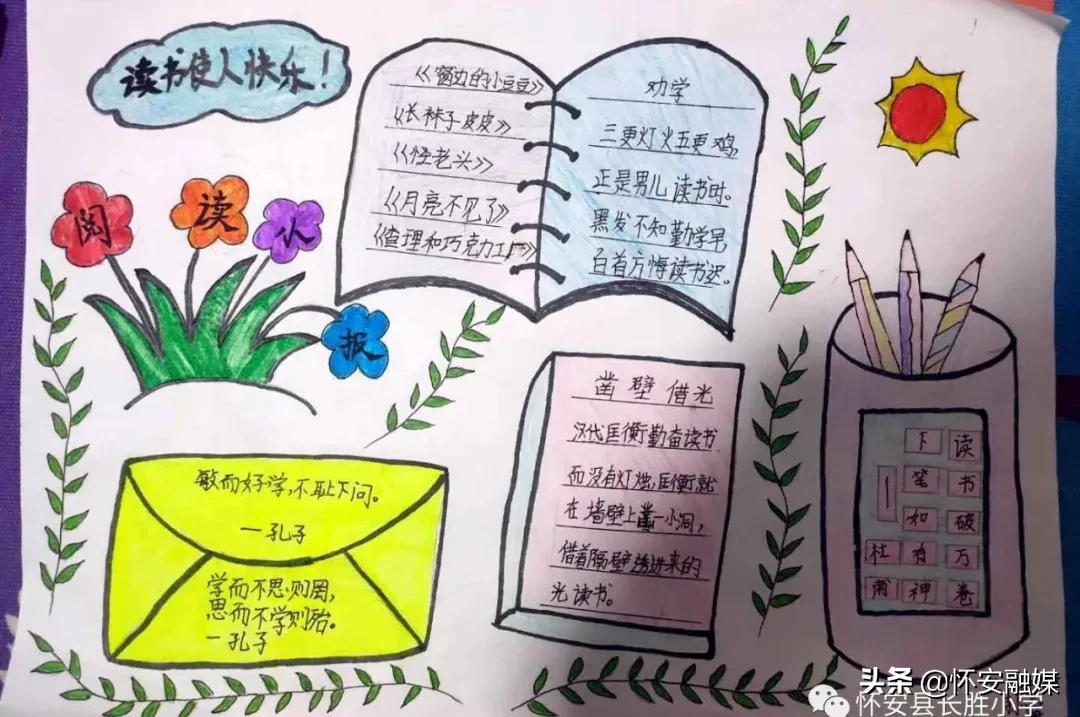 读书使人快乐！
阅读小报
《窗边的小豆豆》
《长袜子皮皮》
《怪老头》
《月亮不见了》
《查理和巧克力工厂》
劝学
三更灯火五更鸡，
正是男儿读书时。
黑发不知勤学早，
白首方悔读书迟。
凿壁借光
汉代匡衡勤奋读书
而没有灯烛，匡衡就
在墙壁上凿一小洞，
借着隔壁透进来的
光读书。
敏而好学，不耻下问。
—孔子
学而不思则罔，
思而不学则殆。
—孔子
读书破万卷
下笔如有神
—杜甫
头条 @怀安融媒
怀安县长胜小学